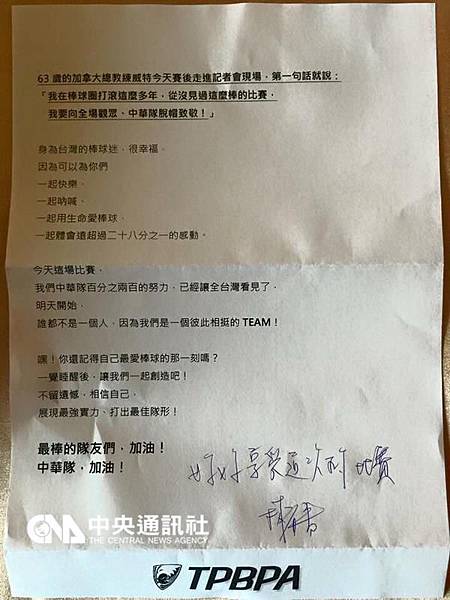 63 歲的加拿大總教練威特今天賽後走進記者會現場，第一句話就說：
「我在棒球圈打滾這麼多年，從沒見過這麼棒的比賽，
我要向全場觀眾、中華隊脫帽致敬！」
身為台灣的棒球迷，很幸福，
因為可以為你們
一起快樂，
一起吶喊，
一起用生命愛棒球，
一起體會遠超過二十八分之一的感動。
今天這場比賽，
我們中華隊百分之兩百的努力，已經讓全台灣看見了，
明天開始，
誰都不是一個人，因為我們是一個彼此相挺的 TEAM！
嘿！你還記得自己最愛棒球的那一刻嗎？
一覺睡醒後，讓我們一起創造吧！
不留遺憾，相信自己，
展現最強實力、打出最佳隊形！
最棒的隊友們，加油！
中華隊，加油！
好好享受這次的比賽
CNA 中央通訊社
THE CENTRAL NEWS AGENCY
TPBPA